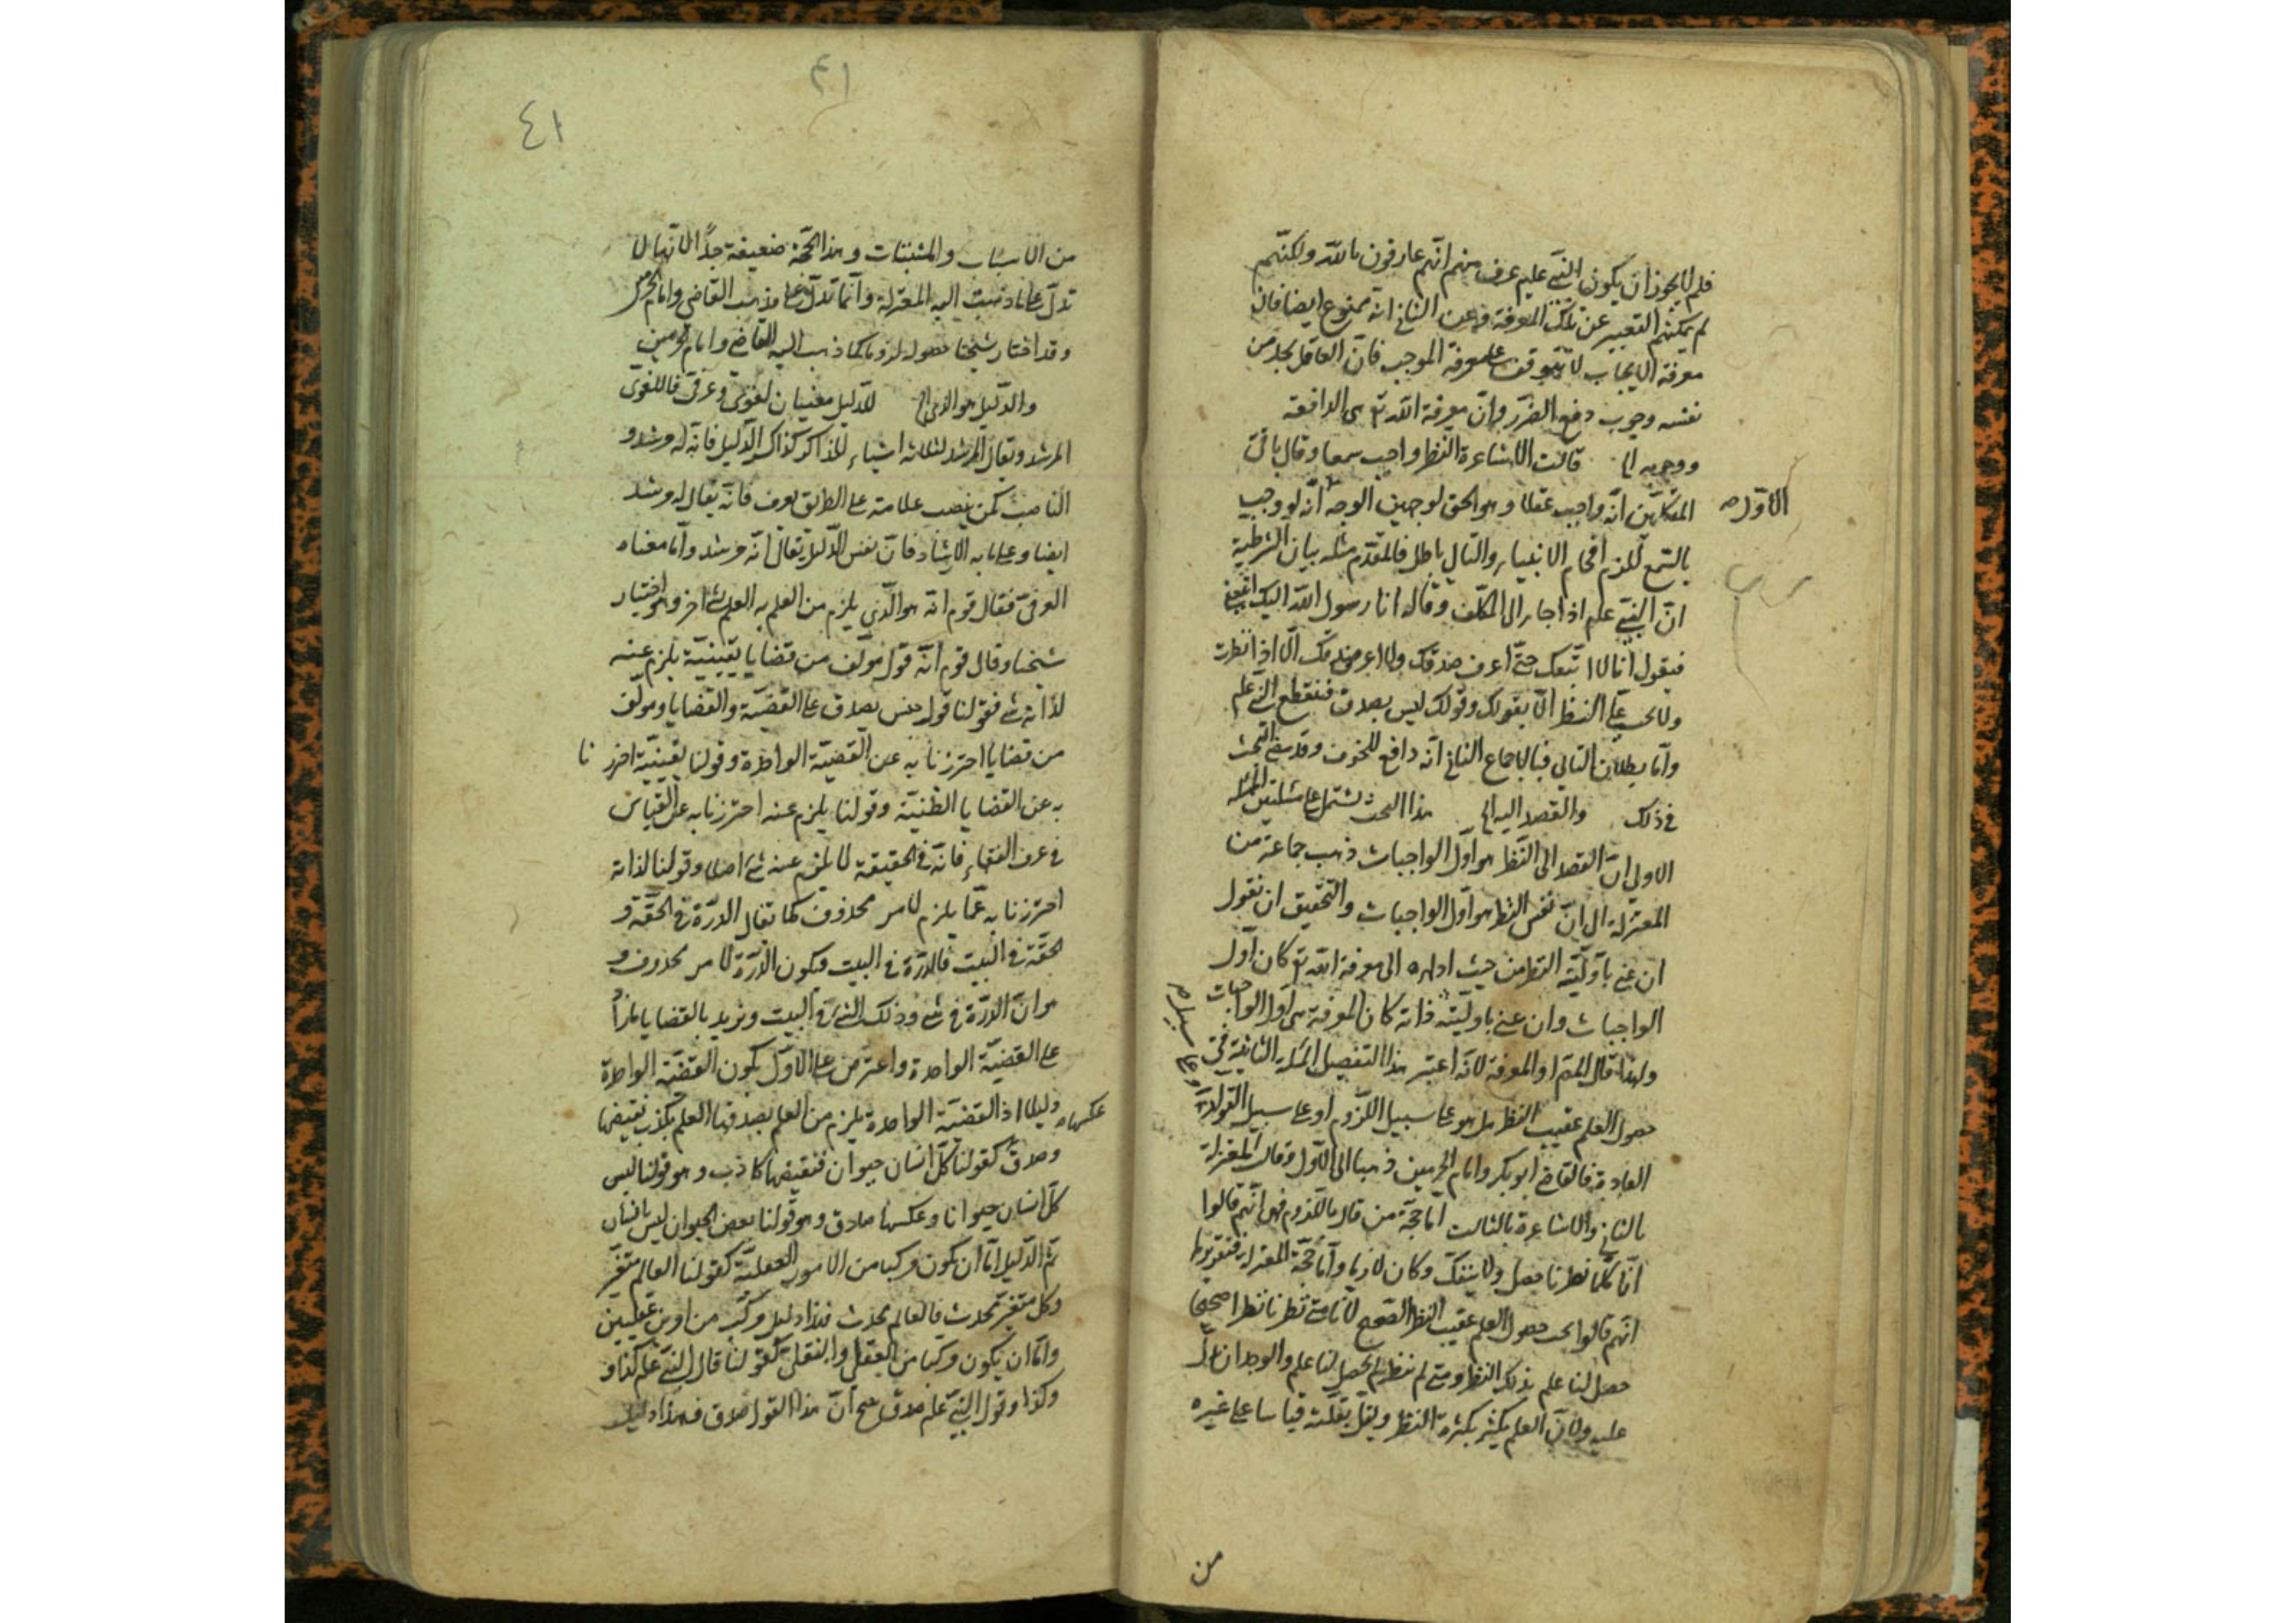 فلم لا يجوز ان يكون النبي علم عرف منهم انهم عارفون بالله ولكنهم
لم يمكنهم التعبير عن تلك المعرفة وعن الثاني انه ممنوع ايضا فان
معرفة الايجاب لا يتوقف على معرفة الموجب فان العاقل يجد من
نفسه وجوب دفع الضرر وان معرفة الله تع هى الدافعة
ووجوبه الخ قالت الاشاعرة النظر واجب سمعا وقال باقى
المتكلمين انه واجب عقلا وهو الحق لوجهين الوجه انه لو وجب
الاول
بالسمع للزم افحام الانبياء والتالى باطل فالمقدم مثله بيان الشرطية
ان النبي علم اذا جاء الى المكلف وقال له انا رسول الله اليك اتبعنى
فيقول انا لا اتبعك حتى اعرف صدقك ولا اعرف صدقك الا اذا نظرت
ولا يجب على النظر الا بقولك وقولك ليس بصدق فينقطع النبي علم
واما بطلان التالى فبالاجماع الثانى انه دافع للخوف وقد سبق البحث
فى ذلك والقصد اليه الخ هذا البحث يشتمل على مسئلتين المسئلة
الاولى ان القصد الى النظر هو اول الواجبات ذهب جماعة من
المعتزلة الى ان نفس النظر هو اول الواجبات والتحقيق ان نقول
ان عنى باولية النظر من حيث اداءه الى معرفة الله تع كان اول
الواجبات وان عنى باوليته ذاته كان المعرفة هى اول الواجبات
ولهذا قال المص او المعرفة لانه اعتبر هذا التفصيل المسئلة الثانية فى
حصول العلم عقيب النظر هل هو على سبيل اللزوم او على سبيل التولد
او على سبيل
العادة فالقاضى ابو بكر وامام الحرمين ذهبا الى الاول وقال المعتزلة
بالثانى والاشاعرة بالثالث اما حجة من قال باللزوم فهى انهم قالوا
انا كلما نظرنا حصل ولا ينفك وكان لازما واما حجة المعتزلة فتقريرها
انهم قالوا يجب حصول العلم عقيب النظر الصحيح لانا متى نظرنا نظرا صحيحا
حصل لنا علم بذلك النظر ومتى لم ننظر لم يحصل لنا علم والوجدان دل
عليه ولان العلم يكثر بكثرة النظر ويقل بقلته قياسا على غيره
من
٤١
٤١
من الاسباب والمسببات وهذا الحجة ضعيفة جدا لانها لا
تدل على ما ذهبت اليه المعتزلة وانما تدل على مذهب القاضى وامام الحرمين
وقد اختار شيخنا حصوله لزوما كما ذهب اليه القاضى وامام الحرمين
والدليل هو الذى الخ للدليل معنيان لغوى وعرفى فاللغوى
المرشد ويقال المرشد لثلاثة اشياء للذاكر كذاكر الدليل فانه مرشد و
الناصب كمن ينصب علامة على الطريق يعرف فانه يقال له مرشد
ايضا وعلى ما به الارشاد فان نفس الدليل يقال انه مرشد واما معناه
العرفى فقال قوم انه هو الذى يلزم من العلم به العلم بشئ اخر وهو اختيار
شيخنا وقال قوم انه قول مؤلف من قضايا يقينية يلزم عنه
لذاته شئ فقولنا قول جنس يصدق على القضية والقضايا ومؤلف
من قضايا احترزنا به عن القضية الواحدة وقولنا يقينية احترزنا
به عن القضايا الظنية وقولنا يلزم عنه احترزنا به عن القياس
فى عرف الفقهاء فانه فى الحقيقة لا يلزم عنه شئ اصلا وقولنا لذاته
احترزنا به عما يلزم لامر محذوف كما تقال الدرة فى الحقة و
الحقة فى البيت فالدرة فى البيت فيكون الدرة لامر محذوف و
هو ان الدرة فى شئ وذلك الشئ فى البيت ونريد بالقضايا ما زاد
على القضية الواحدة واعترض على الاول بكون القضية الواحدة
دليلا اذ القضية الواحدة يلزم من العلم بصدقها العلم بكذب نقيضها
عكسها
وصدق كقولنا كل انسان حيوان فنقيضها كاذب وهو قولنا ليس
كل انسان حيوانا وعكسها صادق وهو قولنا بعض الحيوان ليس بانسان
ثم الدليل اما ان يكون مركبا من الامور العقلية كقولنا العالم متغير
وكل متغير محدث فالعالم محدث فهذا دليل مركب من امرين عقليين
واما ان يكون مركبا من العقلى والنقلى كقولنا قال النبي علم كذا و
وكذا وقول النبي علم صدق صح ان هذا القول صدق فهذا دليل